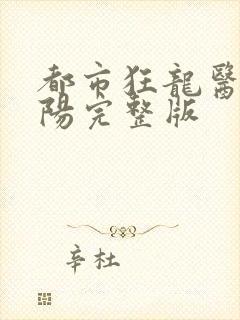 都市狂龍醫
陽完整版
辛杜